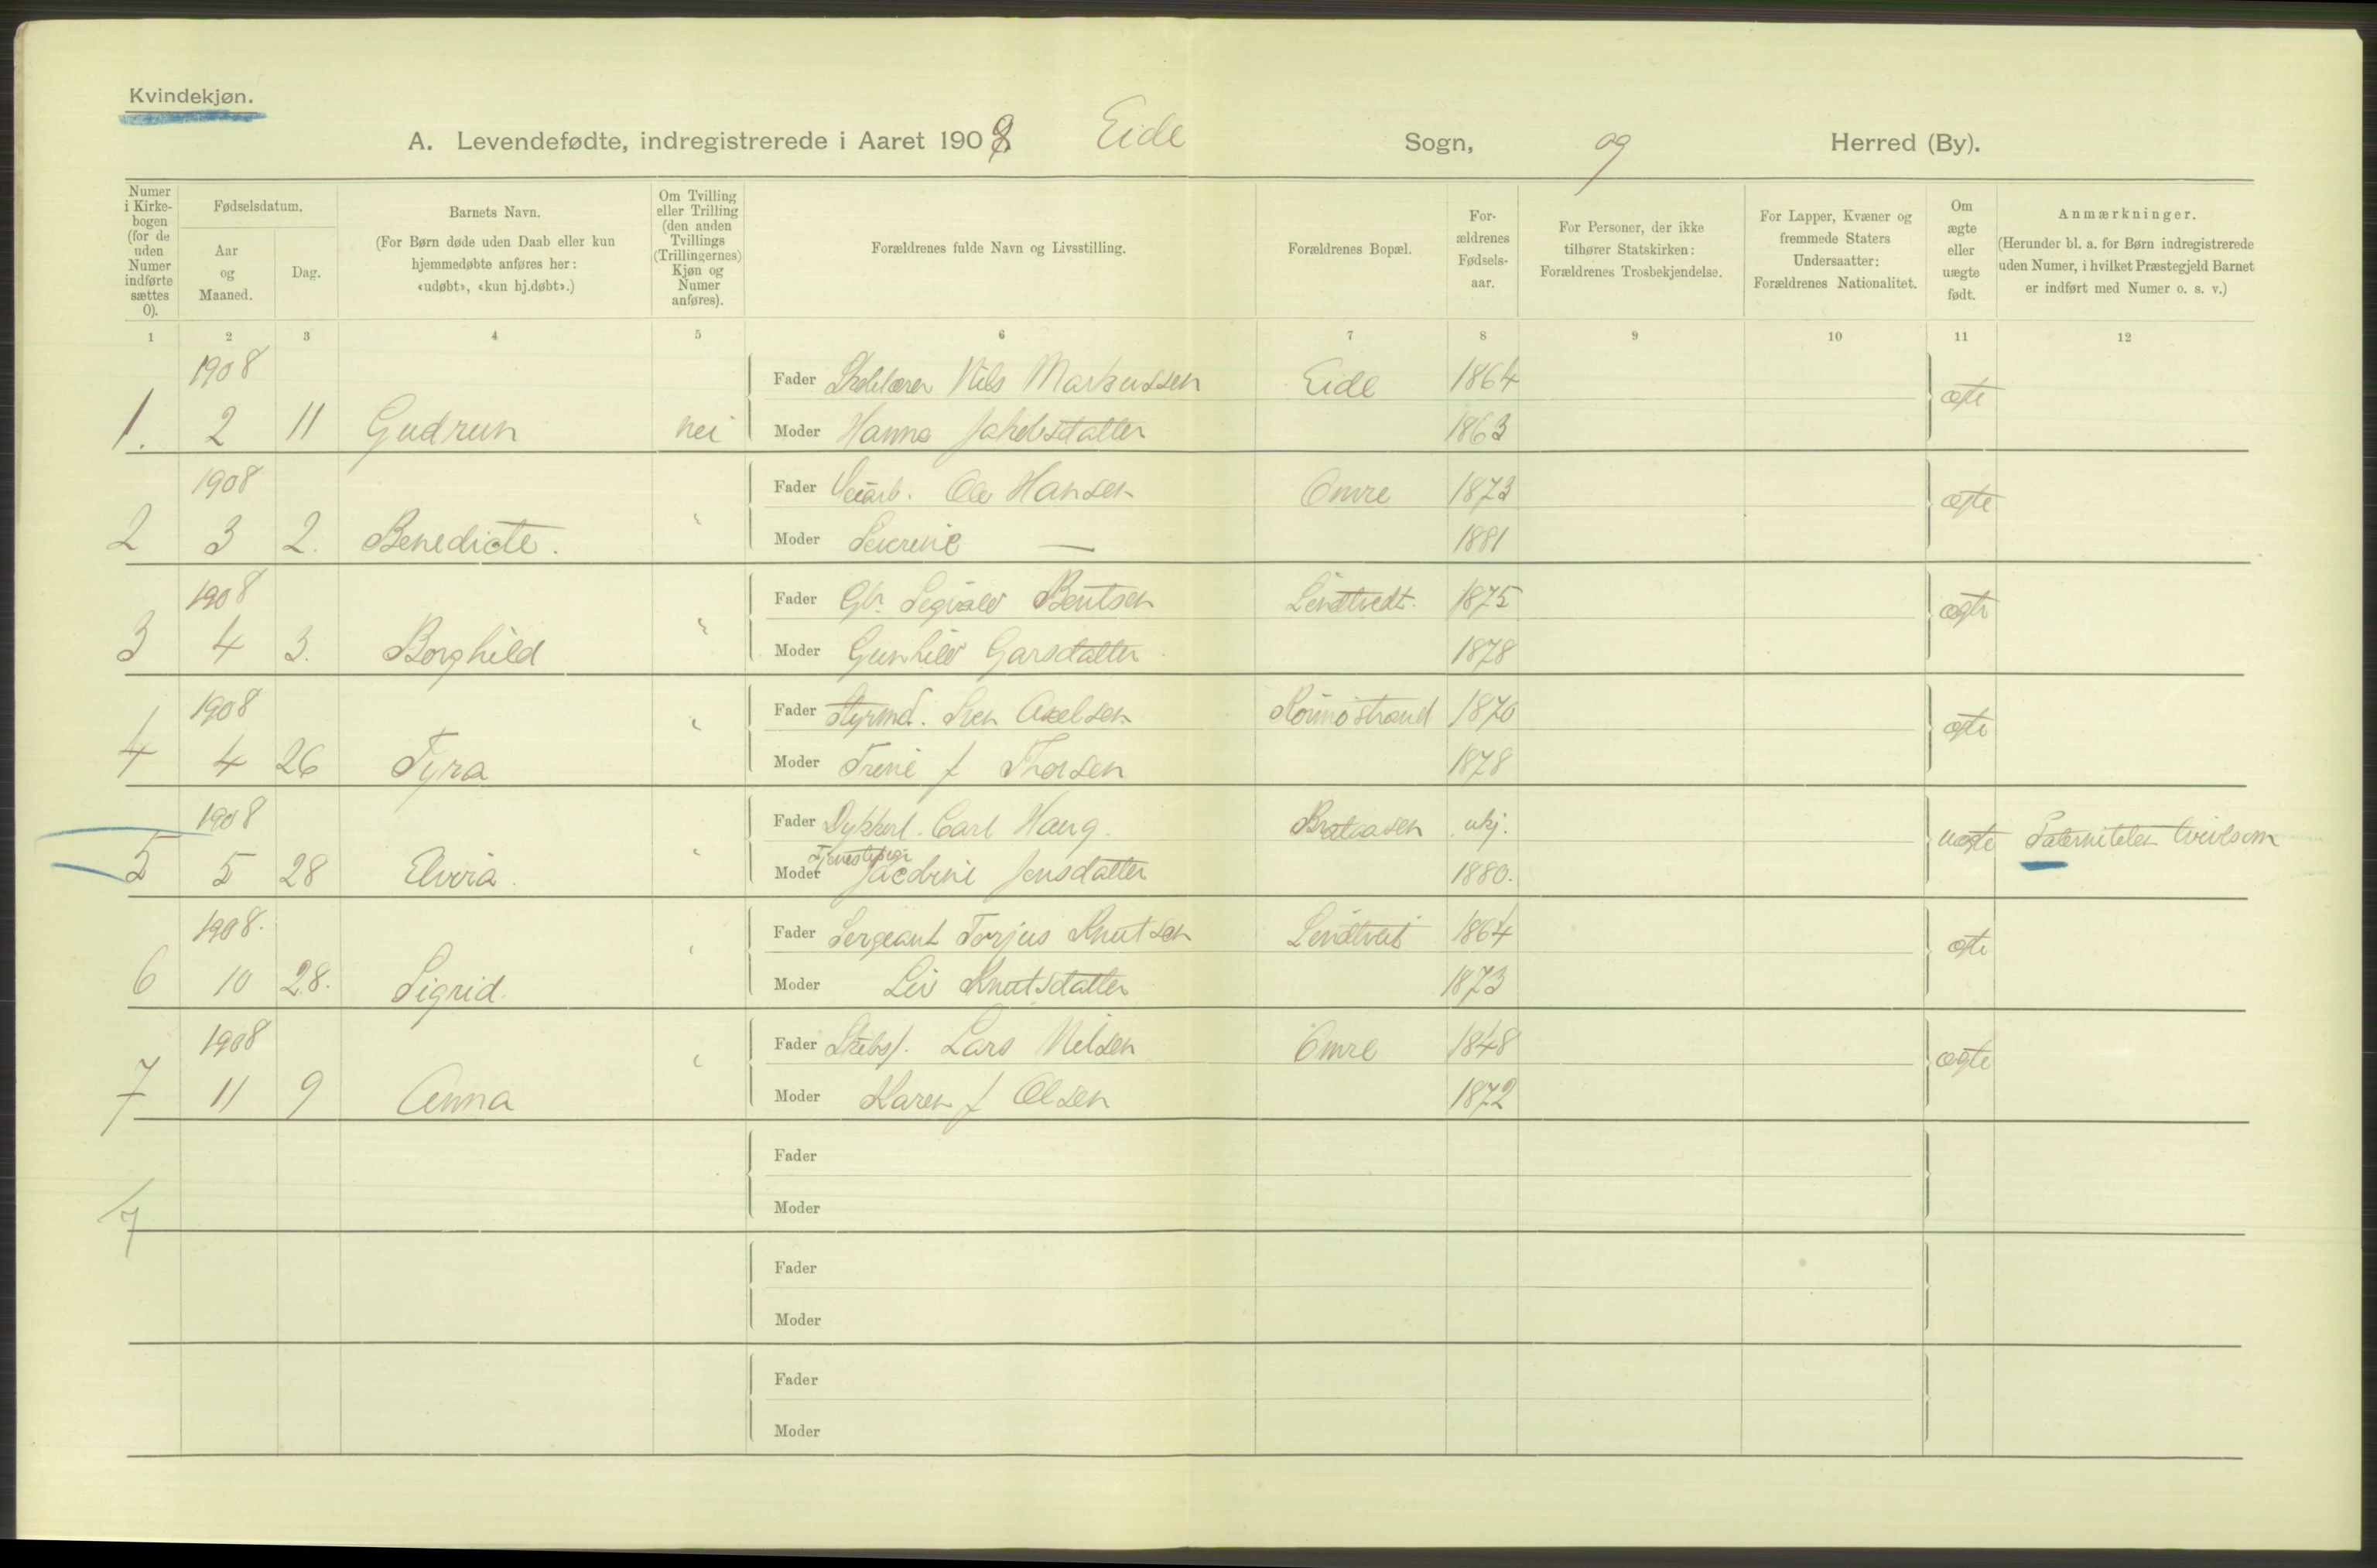 Kvindekjøn.
A. Levendefødte, indregistrerede i Aaret 1908 Eide Sogn, og Herred (By).
Numer i Kirkebogen (for de uden Numer indførte sættes 0).
Fødselsdatum.
Aar og Maaned.
Dag.
Barnets Navn.
(For Børn døde uden Daab eller kun hjemmedøbte anføres her: «udøbt», «kun hj.døbt».)
Om Tvilling eller Trilling (den anden Tvillings (Trillingernes) Kjøn og Numer anføres).
Forældrenes fulde Navn og Livsstilling.
Forældrenes Bopæl.
Forældrenes Fødselsaar.
For Personer, der ikke tilhører Statskirken: Forældrenes Trosbekjendelse.
For Lapper, Kvæner og fremmede Staters Undersaatter: Forældrenes Nationalitet.
Om ægte eller uægte født.
Anmærkninger.
(Herunder bl. a. for Børn indregistrerede uden Numer, i hvilket Præstegjeld Barnet er indført med Numer o. s. v.)
1 2 3 4 5 6 7 8 9 10 11 12
1908 Fader Skolelærer Nils Markussen Eide 1864 ægte
1. 2 11 Gudrun nei Moder Hanna Jakobsdatter 1863
1908 Fader Veiarb. Ole Hansen Omre 1873 ægte
2 3 2. Benedicte. " Moder Severine — 1881
1908 Fader Gbr. Sigvald Bentsen Lindtvedt 1875 ægte
3 4 3. Borghild " Moder Gunhild Garsdatter 1878
1908 Fader Styrmd. Sven Axelsen 1870 ægte
4 4 26 Tyra " Moder Trine f Thorsen 1878
1908 Fader Carl Haug. Brataasen ukj. uægte Paterniteten tvivlsom
5 5 28 Elvira. " Moder Tjenestepige Jacobine Jensdatter 1880.
1908. Fader Sergeant Torjus Knutsen Lindtveit 1864 ægte
6 10 28. Sigrid. " Moder Liv Knutsdatter 1873
1908 Fader Skibsf. Lars Nilsen Omre 1848 ægte
7 11 9 Anna " Moder Karen f Olsen 1872
Fader
Moder
7
Fader
Moder
Fader
Moder